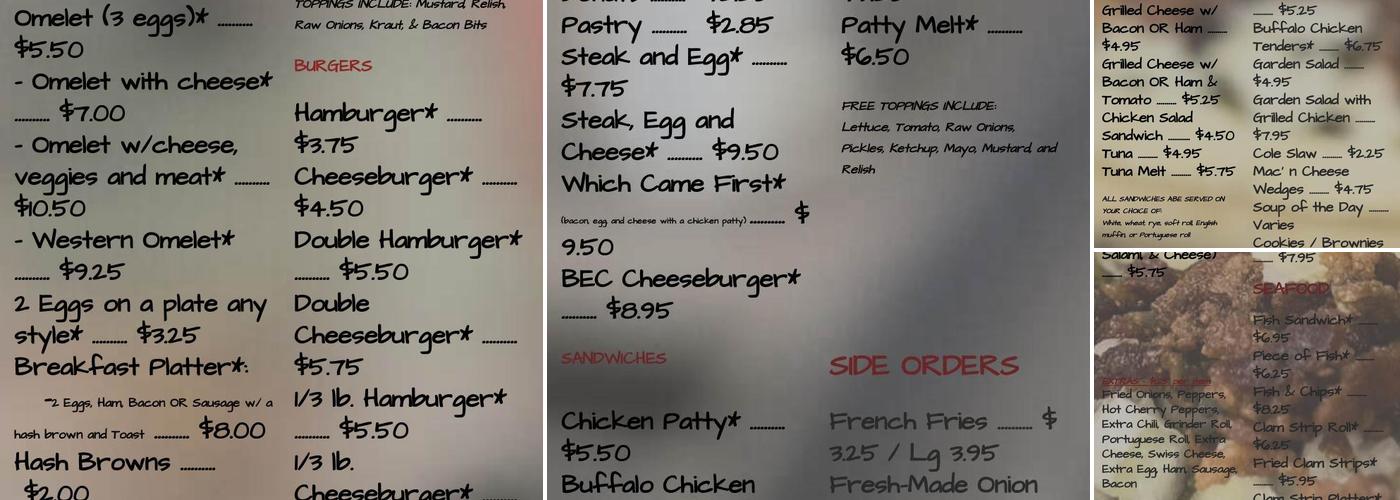 Omelet (3 eggs)* ..........
$5.50
- Omelet with cheese*
.......... $7.00
- Omelet w/cheese,
veggies and meat* ..........
$10.50
- Western Omelet*
.......... $9.25
2 Eggs on a plate any
style* .......... $3.25
Breakfast Platter*:
~2 Eggs, Ham, Bacon OR Sausage w/ a
hash brown and Toast .......... $8.00
Hash Browns ..........
$2.00
TOPPINGS INCLUDE: Mustard, Relish,
Raw Onions, Kraut, & Bacon Bits
BURGERS
Hamburger* ..........
$3.75
Cheeseburger* ..........
$4.50
Double Hamburger*
.......... $5.50
Double
Cheeseburger* ..........
$5.75
1/3 lb. Hamburger*
.......... $5.50
1/3 lb.
Cheeseburger* ..........
Pastry .......... $2.85
Steak and Egg* ..........
$7.75
Steak, Egg and
Cheese* .......... $9.50
Which Came First*
(bacon, egg, and cheese with a chicken patty) .......... $
9.50
BEC Cheeseburger*
.......... $8.95
SANDWICHES
Chicken Patty* ..........
$5.50
Buffalo Chicken
Patty Melt* ..........
$6.50
FREE TOPPINGS INCLUDE:
Lettuce, Tomato, Raw Onions,
Pickles, Ketchup, Mayo, Mustard, and
Relish
SIDE ORDERS
French Fries .......... $
3.25 / Lg 3.95
Fresh-Made Onion
Grilled Cheese w/
Bacon OR Ham ..........
$4.95
Grilled Cheese w/
Bacon OR Ham &
Tomato .......... $5.25
Chicken Salad
Sandwich .......... $4.50
Tuna .......... $4.95
Tuna Melt .......... $5.75
ALL SANDWICHES ABE SERVED ON
YOUR CHOICE OF:
White, wheat, rye, soft roll, English
muffin, or Portuguese roll
.......... $5.25
Buffalo Chicken
Tenders* .......... $6.75
Garden Salad ..........
$4.95
Garden Salad with
Grilled Chicken ..........
$7.95
Cole Slaw .......... $2.25
Mac' n Cheese
Wedges .......... $4.75
Soup of the Day ..........
Varies
Cookies / Brownies
Salami, & Cheese)
.......... $5.75
EXTRAS - $.25 per item
Fried Onions, Peppers,
Hot Cherry Peppers,
Extra Chili, Grinder Roll,
Portuguese Roll, Extra
Cheese, Swiss Cheese,
Extra Egg, Ham, Sausage,
Bacon
.......... $7.95
SEAFOOD
Fish Sandwich* ..........
$6.95
Piece of Fish* ..........
$6.25
Fish & Chips* ..........
$8.25
Clam Strip Roll* ..........
$6.25
Fried Clam Strips*
.......... $5.95
Clam Strip Platter*